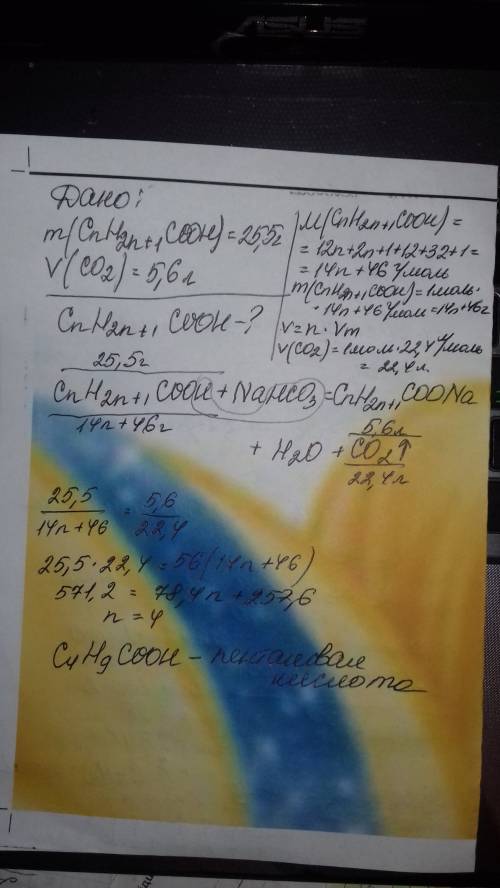 ASUS
Дано:
m(CnH2n+1COOH)=25,5г
V(CO2)=5,6л
CnH2n+1COOH-?
M(CnH2n+1COOH)=
=12n+2n+1+12+32+1=
=14n+46 г/моль
m(CnH2n+1COOH)=1моль·
·14n+46 г/моль=14n+46г
V=n·Vm
V(CO2)=1моль·22,4 л/моль
=22,4л.
25,5г
CnH2n+1COOH+NaHCO3=CnH2n+1COONa
14n+46г
5,6л
+ H2O + CO2↑
22,4л
25,5/14n+46 = 5,6/22,4
25,5·22,4=56(14n+46)
571,2 = 78,4n+257,6
n=4
C4H9COOH-пентановая
кислота